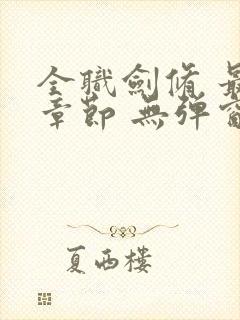 全職劍脩 最
章節 無彈窗
夏西樓